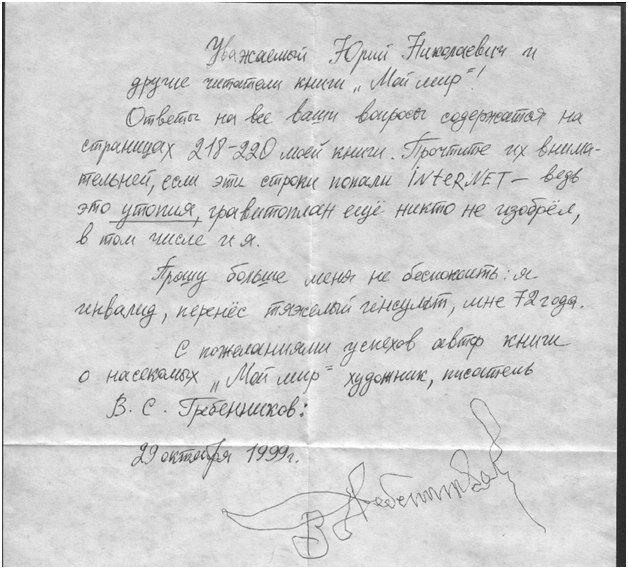 Уважаемый Юрий Николаевич и
другие читатели книги „Мой мир"!
Ответы на все ваши вопросы содержатся на
страницах 218-220 моей книги. Прочтите их внима-
тельней, если эти строки попали INTERNET – ведь
это утопия, гравитоплан ещё никто не изобрёл,
в том числе и я.
Прошу больше меня не беспокоить: я
инвалид, перенёс тяжелый инсульт, мне 72 года.
С пожеланиями успехов автор книги
о насекомых „Мой мир" художник, писатель
В. С. Гребенников:
29 октября 1999 г.
В. Гребенников